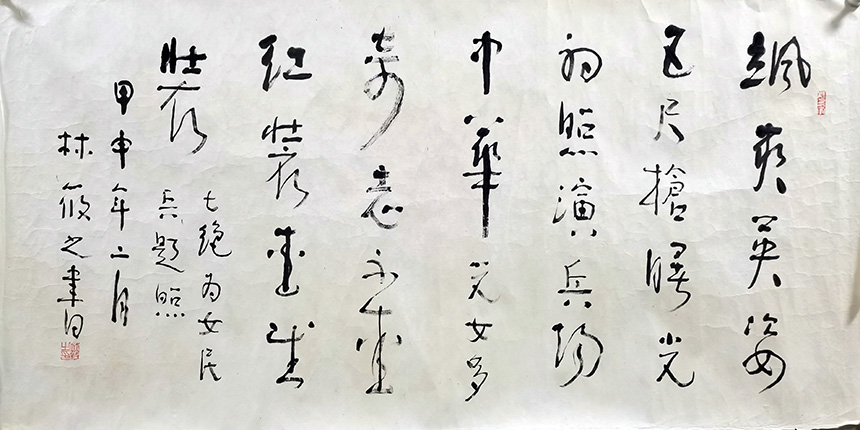 飒爽英姿
五尺槍曙光
初照演兵場
中華兒女多
奇志不爱
红装爱武
装
七绝为女民
兵题照
甲申年二月
林筱之書